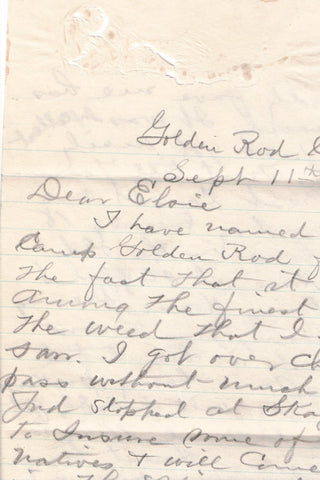 Golden Rod
Sept 11th
Dear Elsie
I have named
Camp Golden Rod
the fact that at
among the finest
the weed that I
saw. I got over
pass without much
and stopped at
to Insure some of
natives & will Come